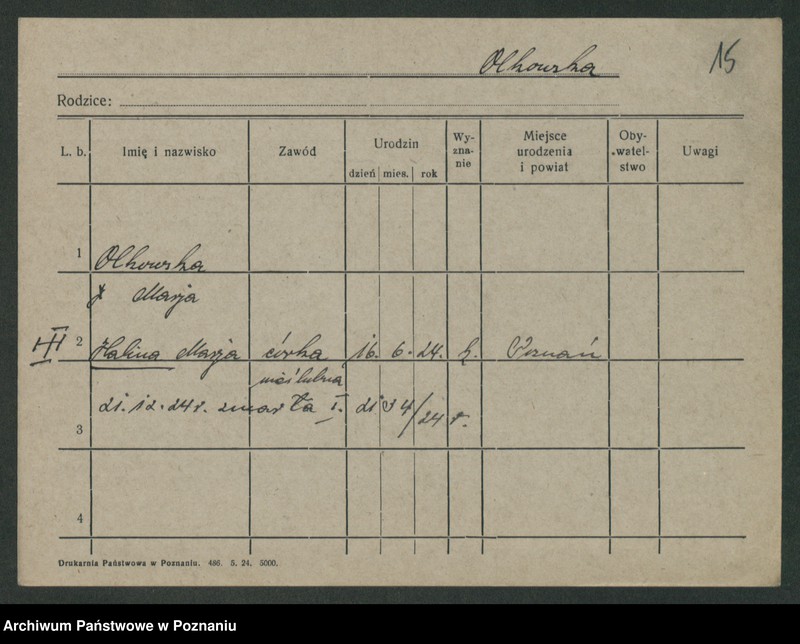 Olkowska 15
Rodzice:
L. b. Imię i nazwisko Zawód Urodzin dzień mies. rok Wy-zna-nie Miejsce urodzenia i powiat Oby-watel-stwo Uwagi
1 Olkowska
Marja
III 2 Halina Marja córka 16. 6. 24. k. Poznań
nieślubna
3 21. 12. 24 r. zmarła I. 24 r.
4
Drukarnia Państwowa w Poznaniu. 486. 5. 24. 5000.
Archiwum Państwowe w Poznaniu